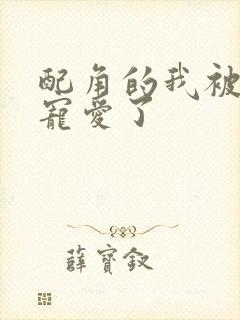 配角的我被
寵愛了
薛寶釵